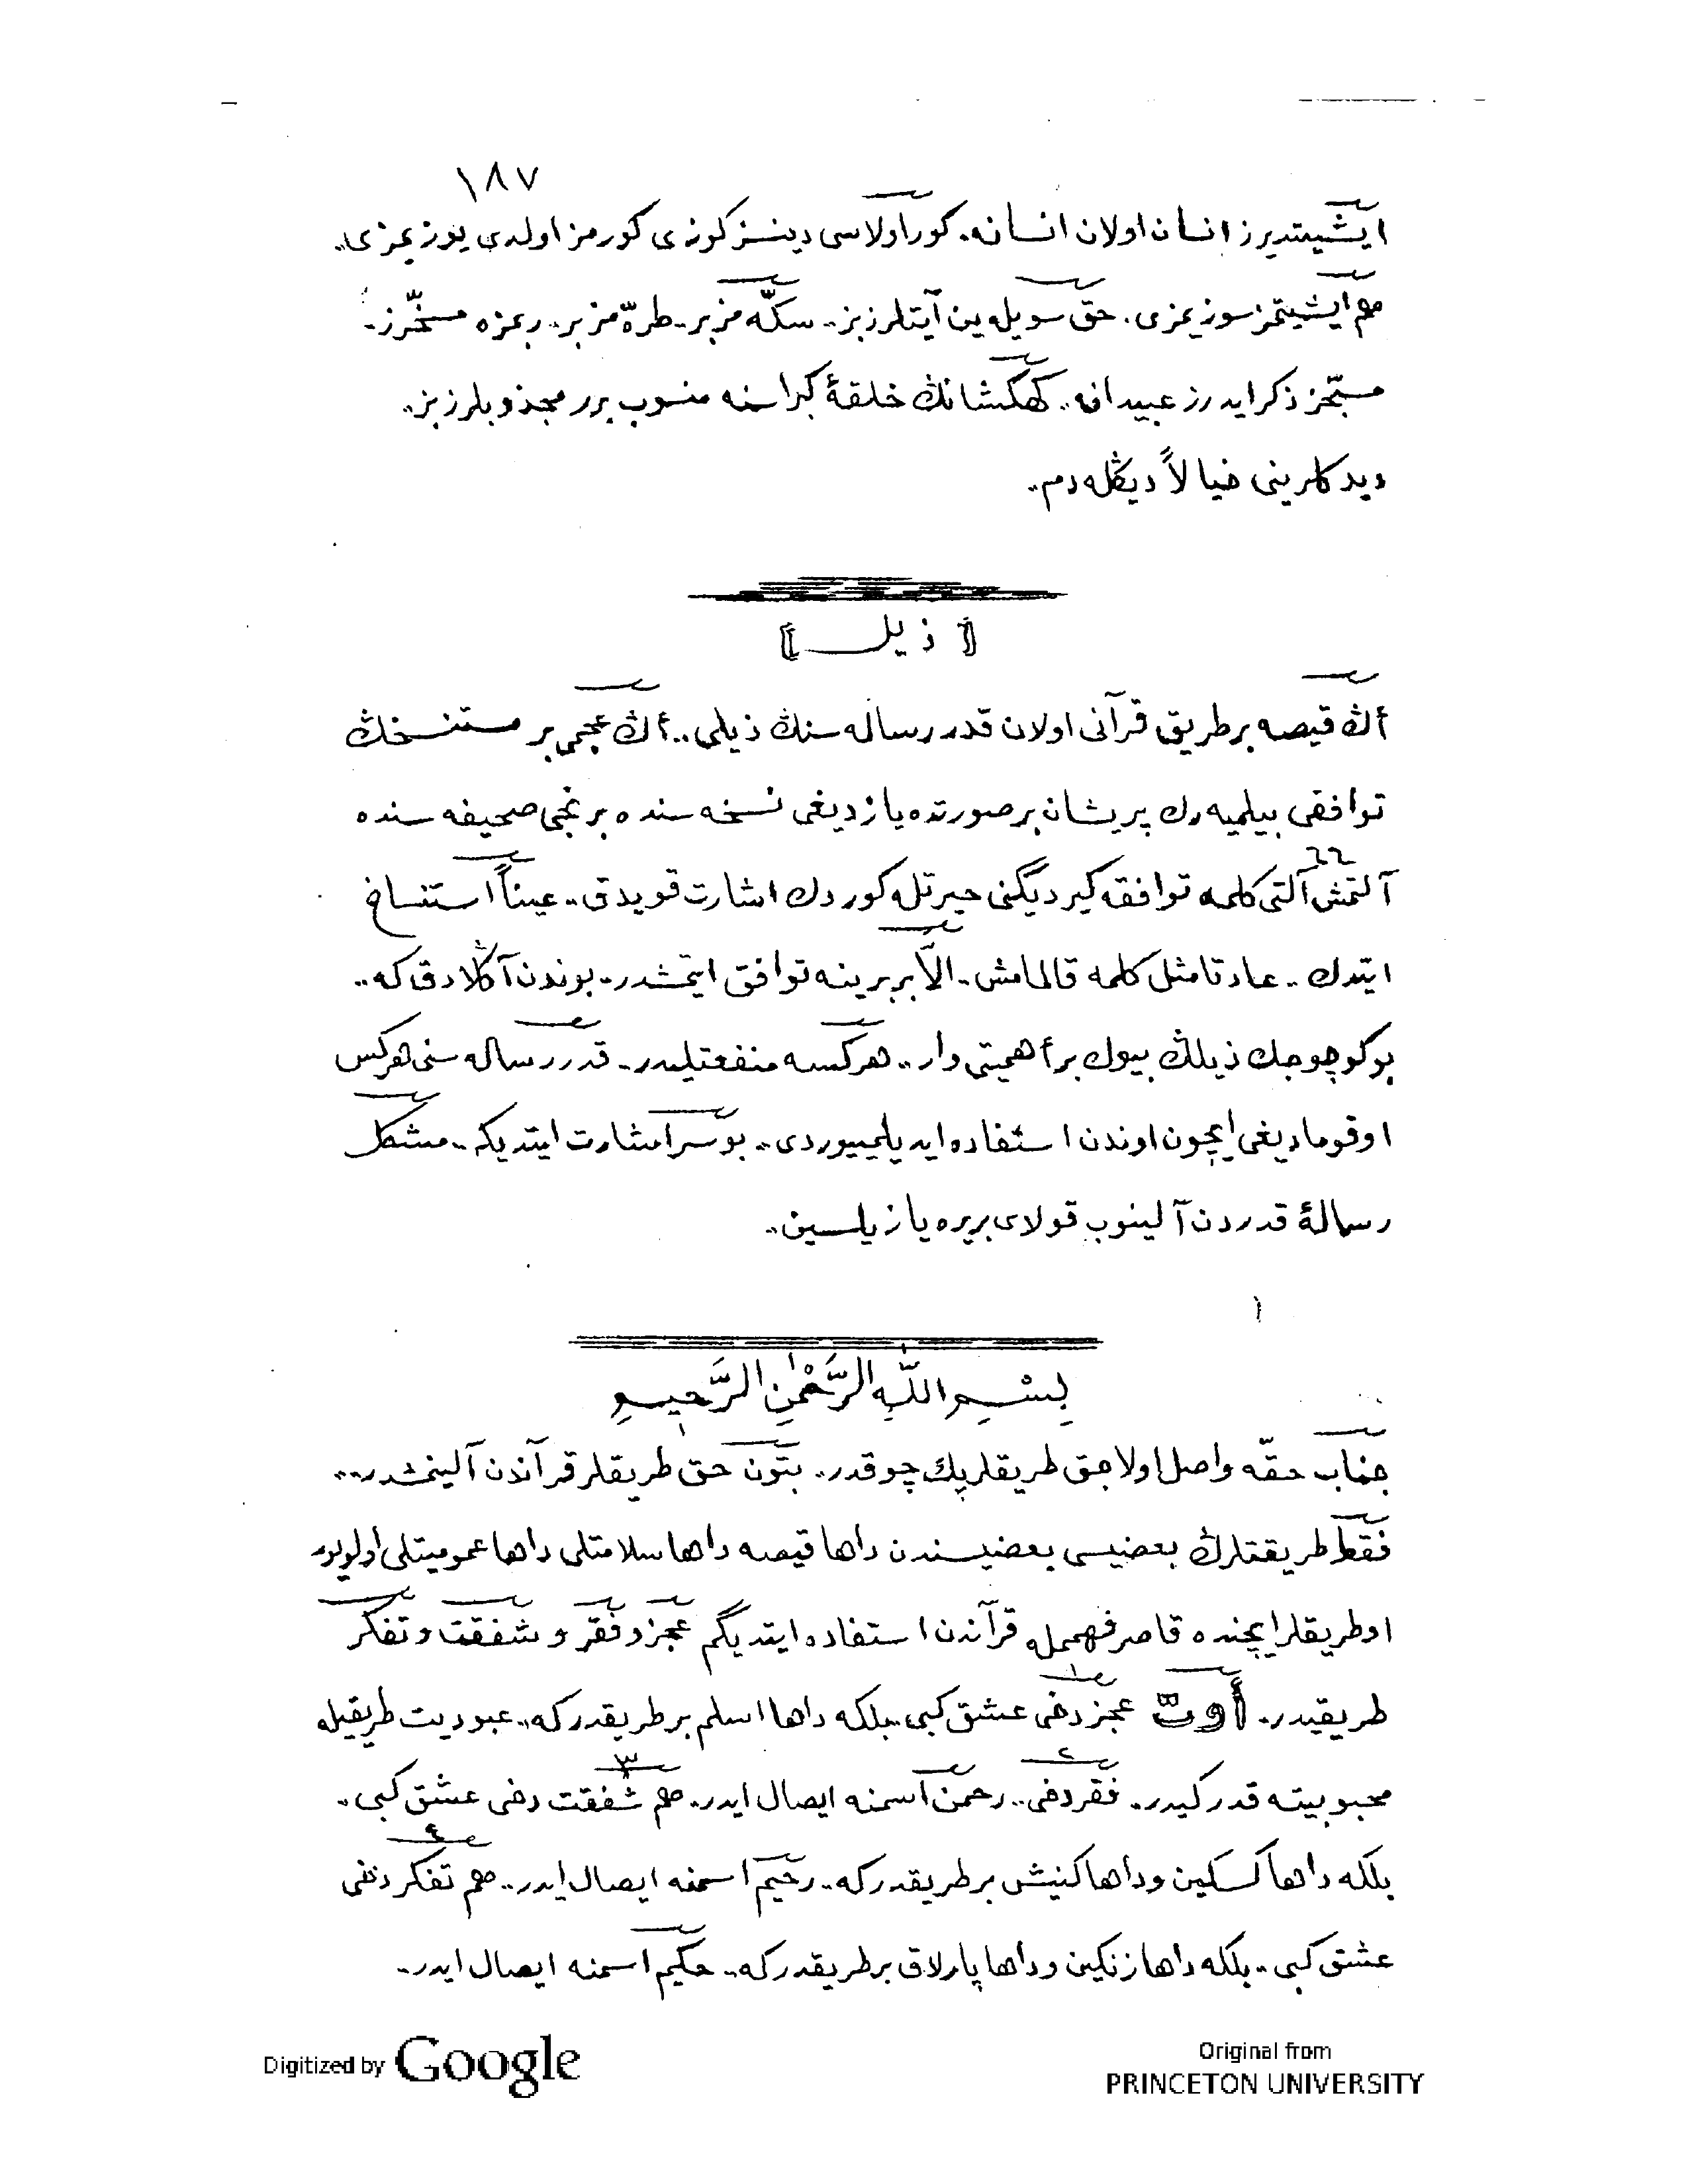 ١٨٧
ايشيتديرز انسان اولان انسانه. كور اولاسی دينسز كوزی كورمز اولدی يوزيمزی..
هم ايشيتمز سوزيمزی. حق سويله ين آيتلرز بز.. سكّه مز بر.. طرهّ مز بر. ربمزه مسخّرز..
مسبّحز ذكر ايدرز عبيدانه.. كهكشانڭ خلقۀ كبراسنه منسوب برر مجذوبلرز بز..
ديدكلرينی خيالاً ديڭله دم..
﴿ ذيل ﴾
أڭ قيصه بر طريق قرآنی اولان قدر رساله سنڭ ذيلی.. أڭ عجمی بر مستنسخڭ
توافقی بيلميه رك پريشان بر صورتده يازديغی نسخه سنده برنجی صحيفه سنده
٦٦
آلتمش آلتی كلمه توافقه كيرديگنی حيرتله كوردك اشارت قويدق.. عيناً استنساخ
ايتدك.. عادتا مثل كلمه قالمامش.. الاّ بربرينه توافق ايتمشدر.. بوندن آڭلادق كه..
بو كوچوجك ذيلڭ بيوك بر أهميتی وار.. هركسه منفعتليدر.. قدر رساله سنی هركس
اوقوماديغی ايچون اوندن استفاده ايديلميوردی.. بو سر اشارت ايتديكه.. مشكل
رسالۀ قدردن آلينوب قولای بريره يازيلسين..
بِسْمِ اللّٰهِ الرَّحْمٰنِ الرَّحِيمِ
جناب حقّه واصل اولاجق طريقلر پك چوقدر.. بتون حق طريقلر قرآندن آلينمشدر...
فقط طريقتلرڭ بعضيسی بعضيسندن داها قيصه داها سلامتلی داها عموميتلی اولويور
او طريقلر ايچنده قاصر فهممله قرآندن استفاده ايتديگم عجز و فقر و شفقت و تفكر
طريقيدر. أوت عجز دخی عشق كبی.. بلكه داها اسلم بر طريقدركه.. عبوديت طريقيله
١
محبوبيته قدر كيدر. فقر دخی.. رحمن اسمنه ايصال ايدر. هم شفقت دخی عشق كبی.
٢ ٣
بلكه داها كسكين و داها كنيش بر طريقدركه.. رحيم اسمنه ايصال ايدر.. هم تفكر دخی
٤
عشق كبی.. بلكه داها زنكين و داها پارلاق بر طريقدركه.. حكيم اسمنه ايصال ايدر..
Digitized by Google
Original from
PRINCETON UNIVERSITY